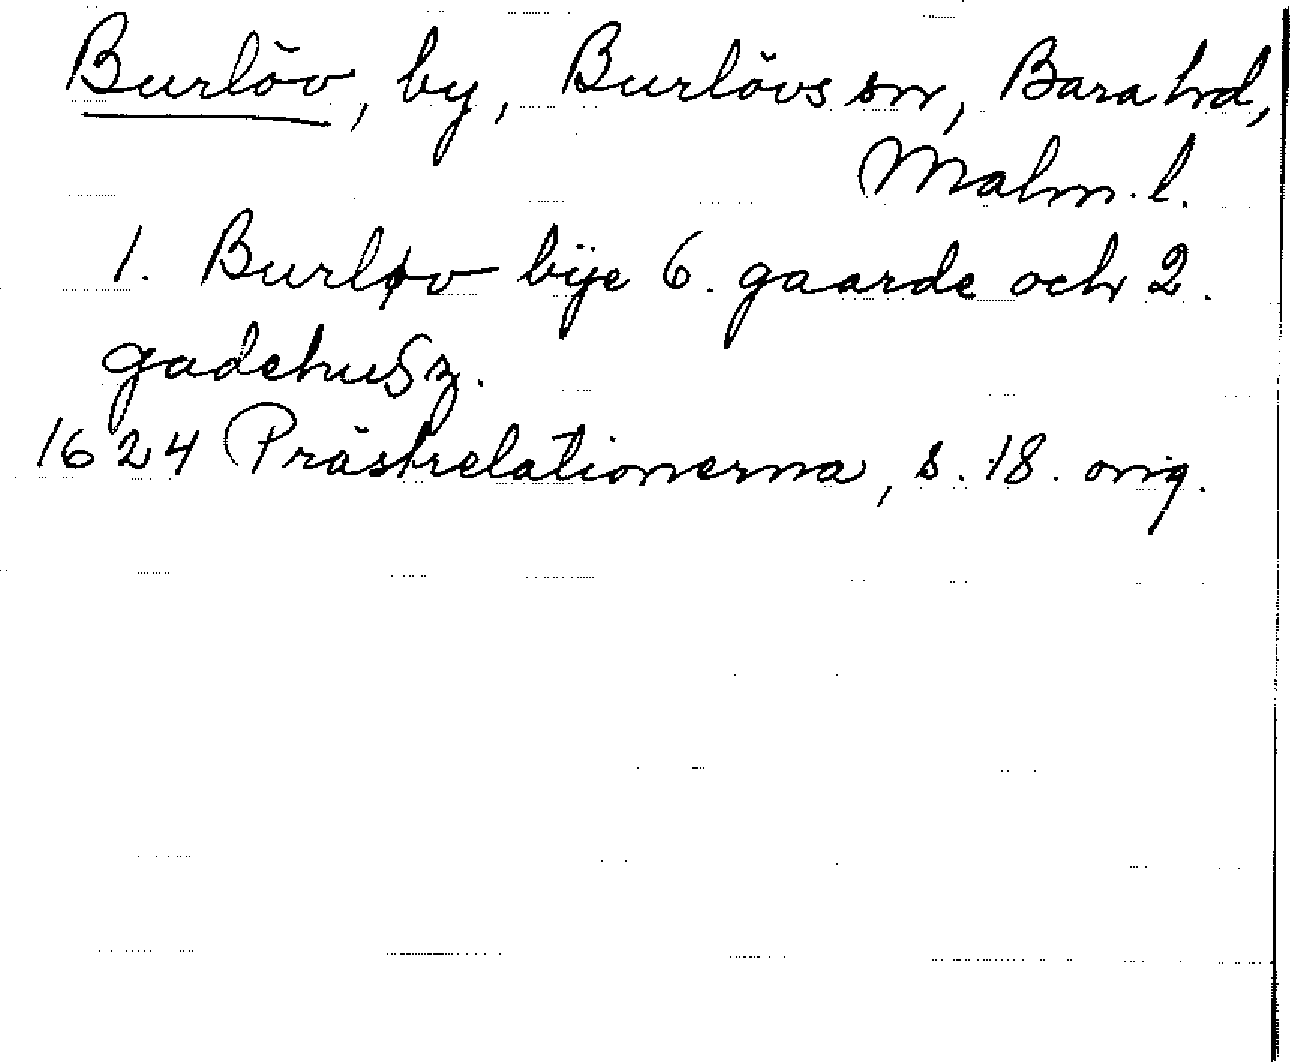 Burlöv, by, Burlövs sn, Bara hd,
Malm. l.
1. Burløv bÿe 6. gaarde och 2.
gadehusz.
1624 Prästrelationerna, s. 18. orig.